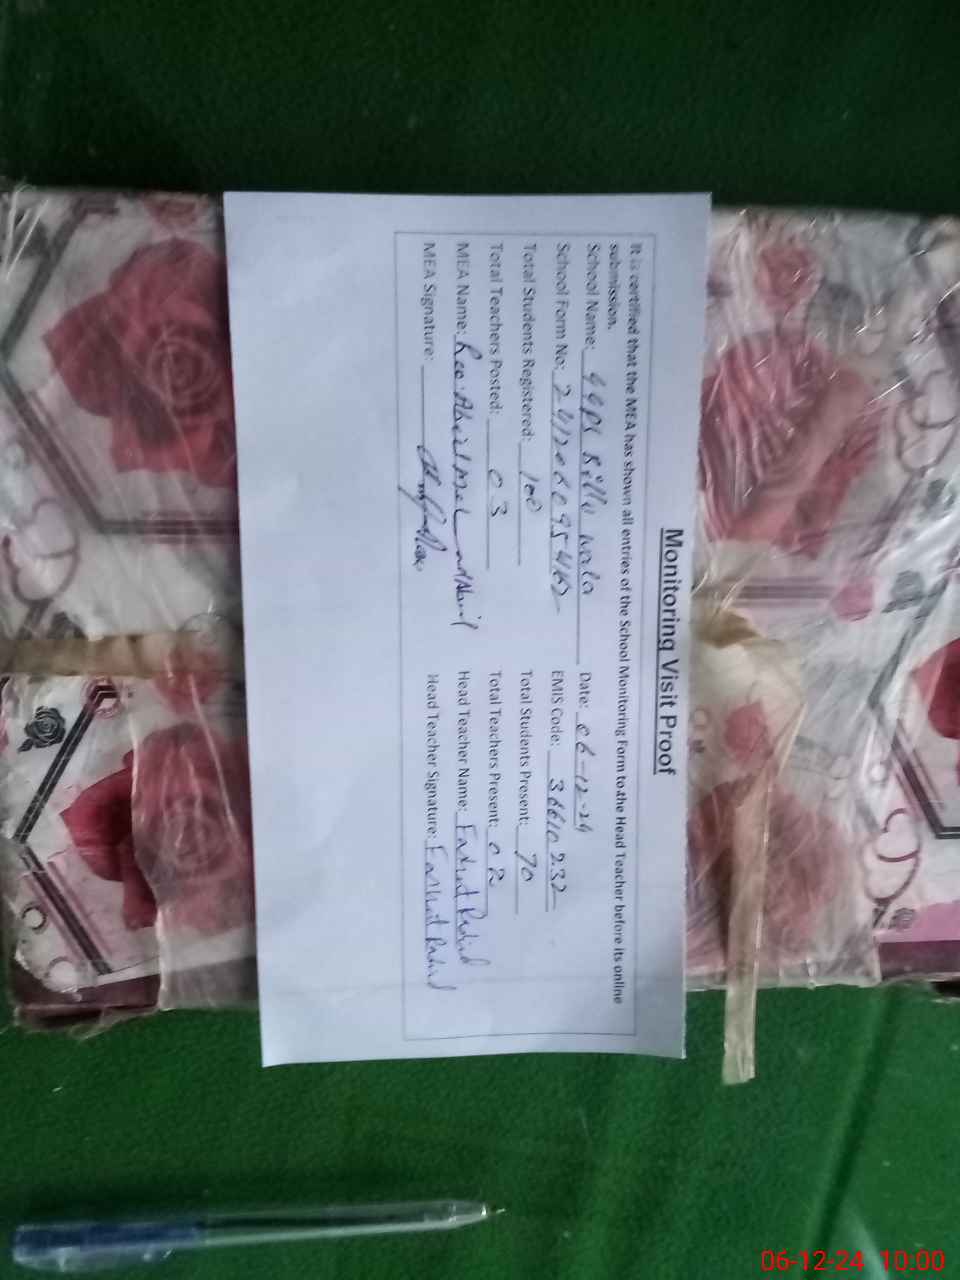 Monitoring Visit Proof
It is certified that the MEA has shown all entries of the School Monitoring Form to the Head Teacher before its online
submission.
School Name: GGPS Billu wala Date: 06-12-24
School Form No: EMIS Code: 36610232
Total Students Registered: 100 Total Students Present: 70
Total Teachers Posted: 03 Total Teachers Present: 02
MEA Name: Head Teacher Name:
MEA Signature: Head Teacher Signature:
06-12-24 10:00